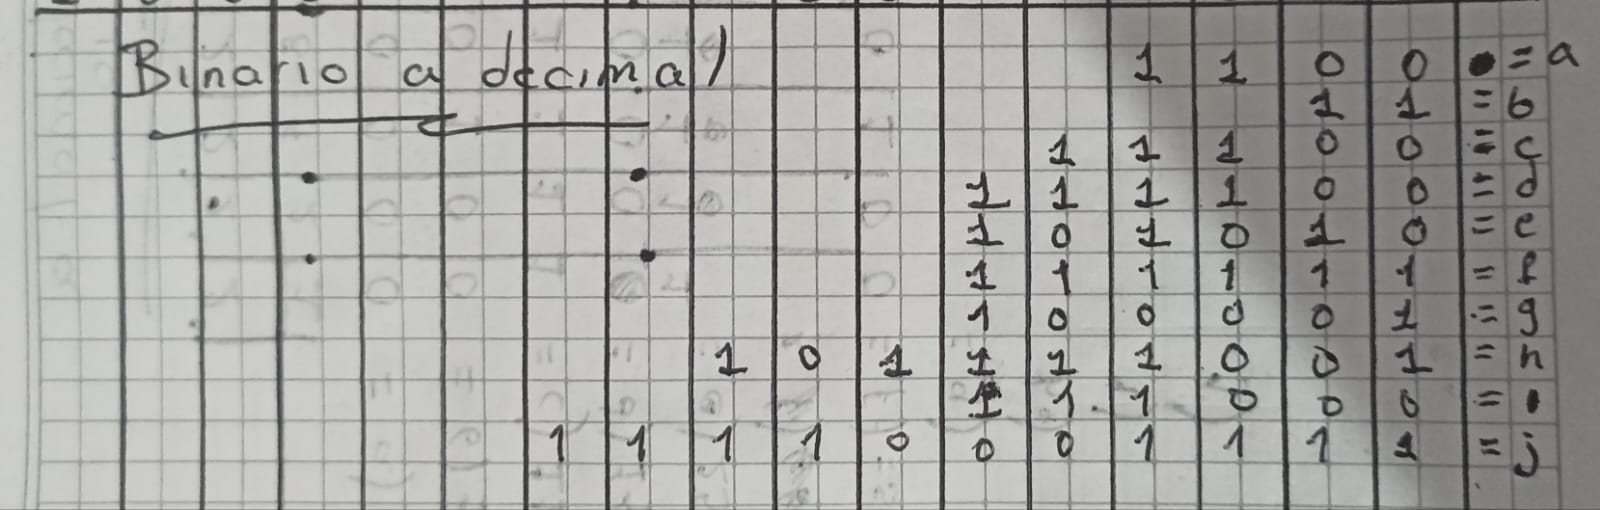 Binario a decimal
1 1 0 0 = a
1 1 = b
1 1 1 0 0 = c
1 1 1 1 0 0 = d
1 0 1 0 1 0 = e
1 1 1 1 1 1 = f
1 0 0 0 0 1 = g
1 0 1 1 1 1 0 0 1 = h
1 1 1 0 0 0 =
1 1 1 1 0 0 0 1 1 1 1 = j